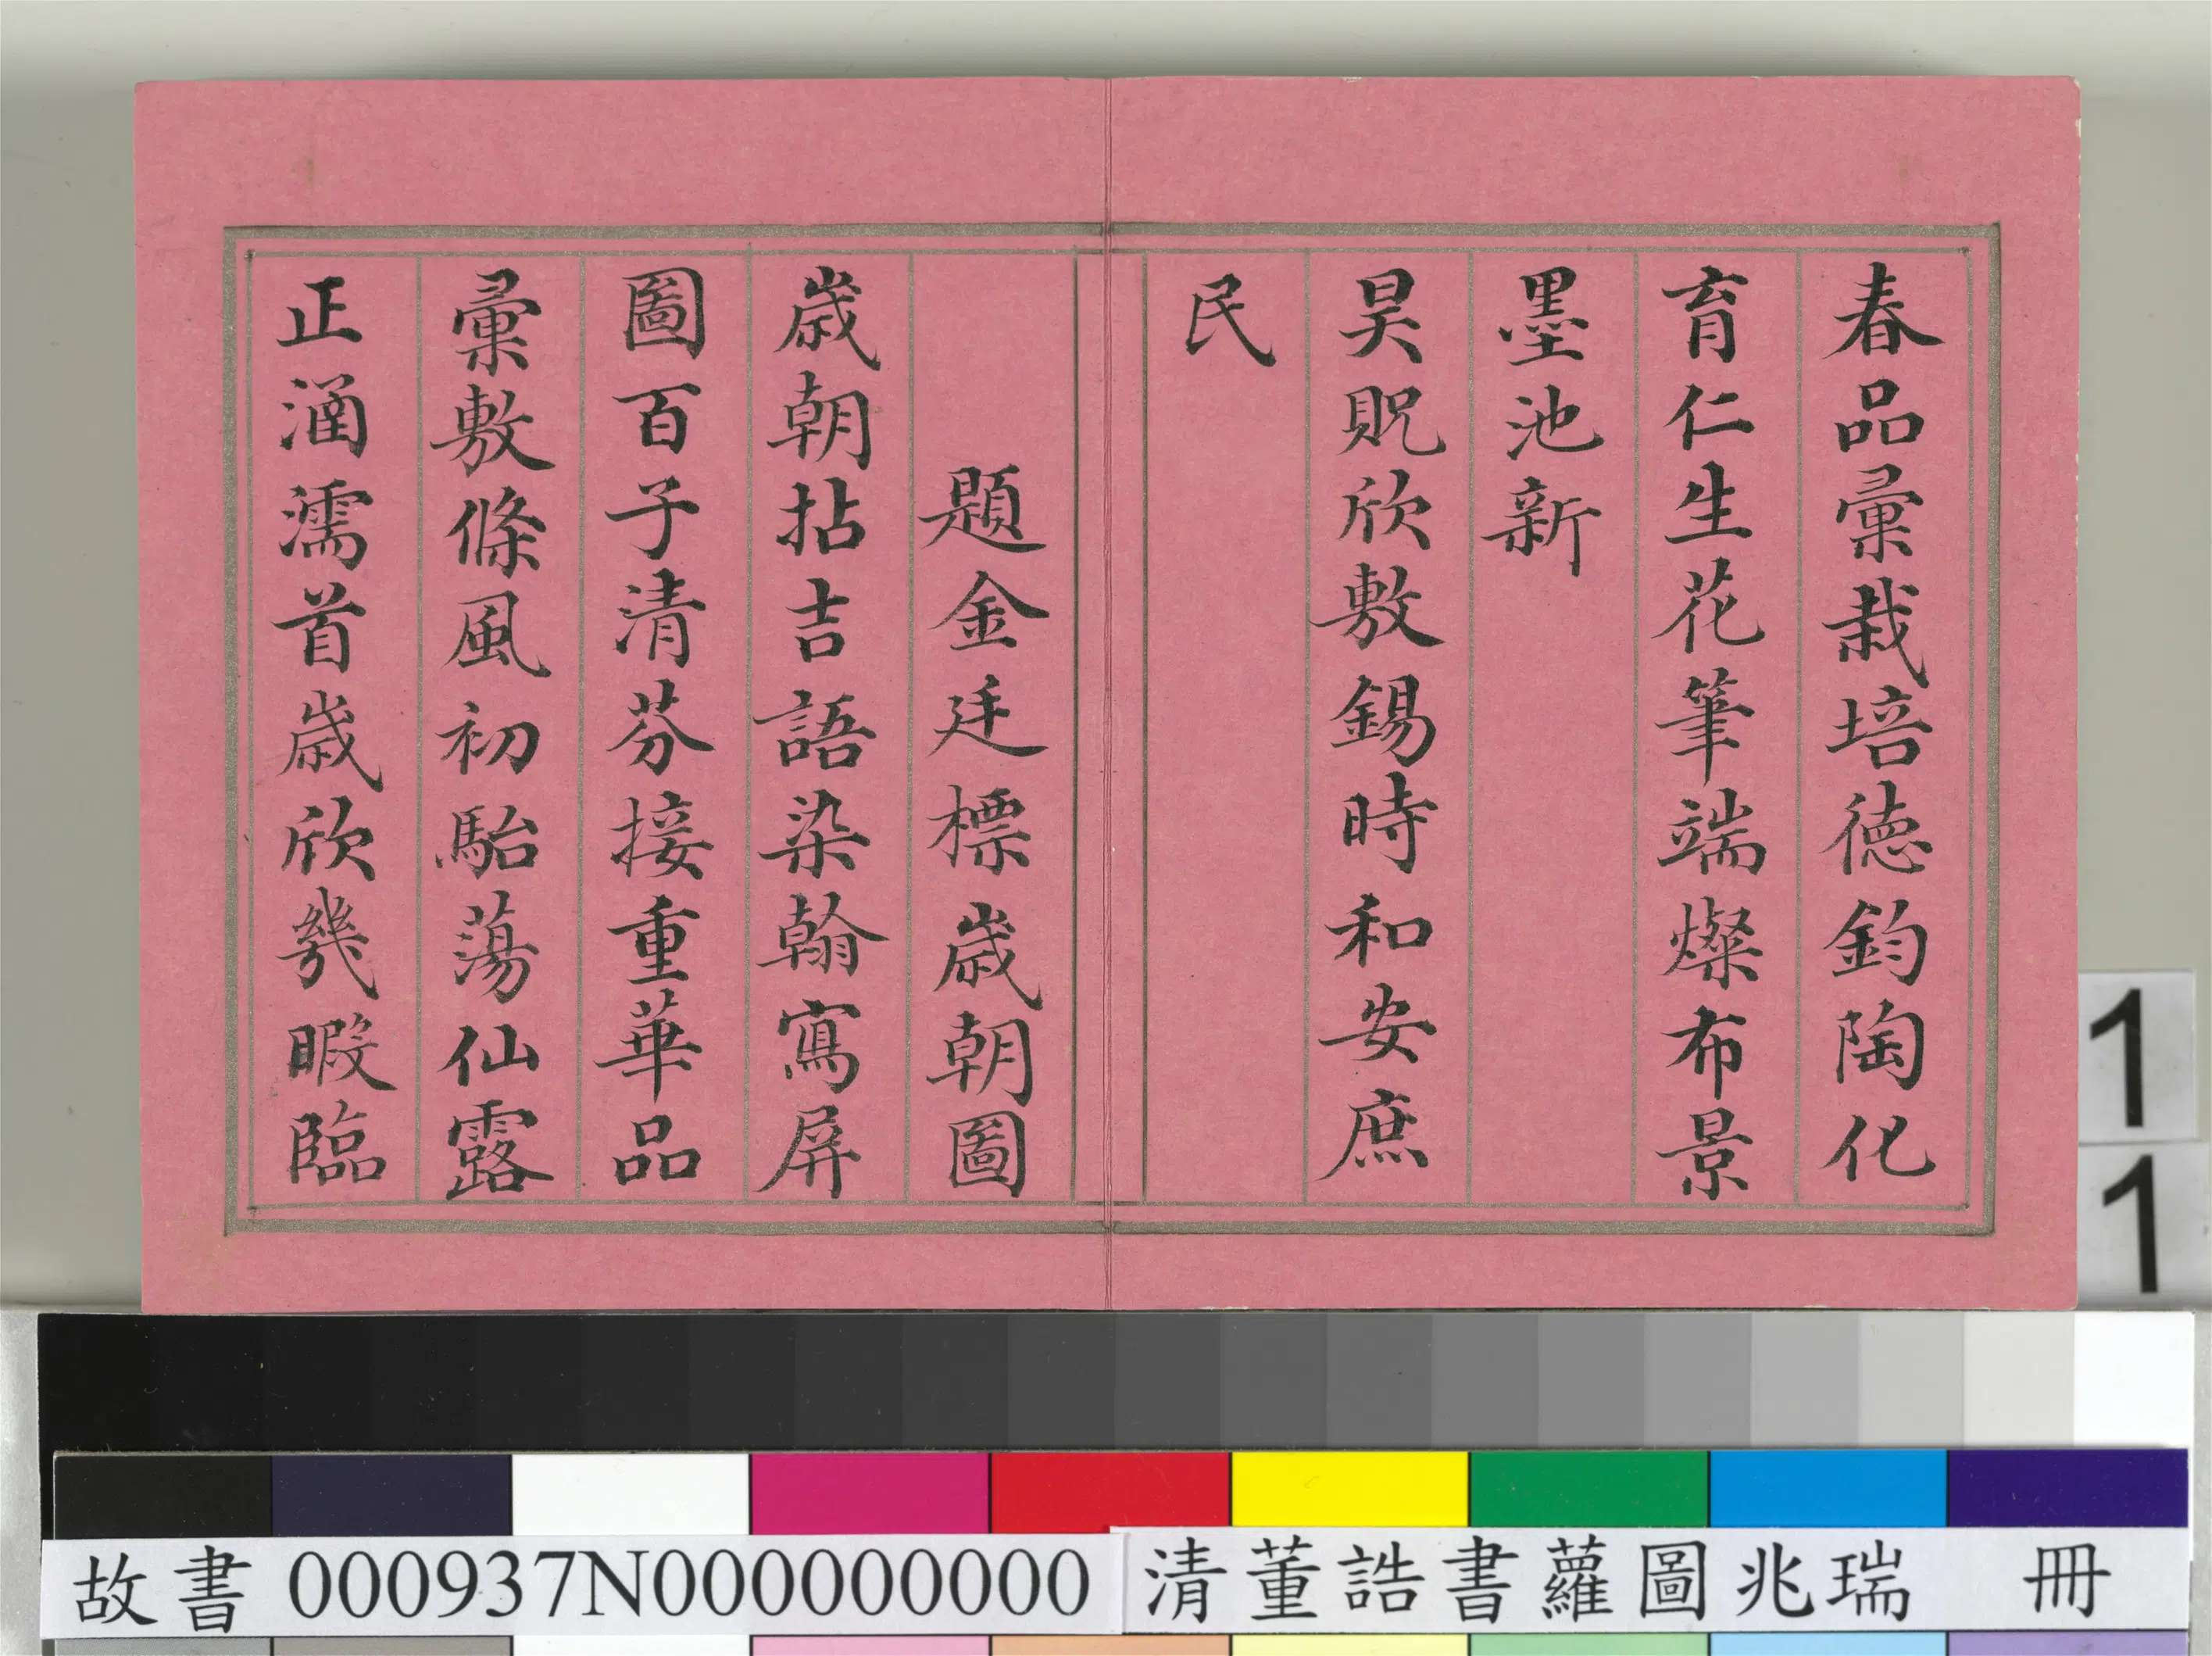 春品彙栽培德鈞陶化
育仁生花筆端燦布景
墨池新
昊貺欣敷錫時和安庶
民
題金廷標歲朝圖
歲朝拈吉語染翰寫屏
圖百子清芬接重華品
彙敷條風初駘蕩仙露
正涵濡首歲欣幾暇臨
1
1
故書 000937N000000000 清董誥書蘿圖兆瑞 冊